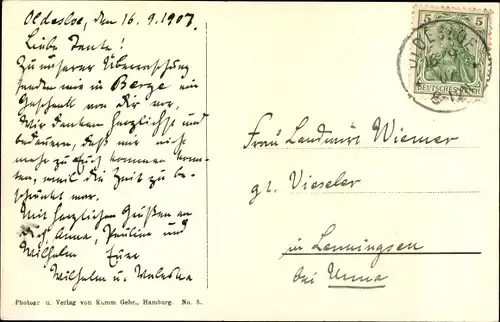 Oldesloe, den 16.9.1907.
Liebe Tante!
Zu unserer Überraschung
fanden wir in Berge ein
Geschenk von dir vor,
Wir danken herzlichst und
bedauern, daß wir nicht
mehr zu Euch kommen konn-
ten, weil die Zeit zu be-
schränkt war.
Mit herzlichen Grüßen an
Dich, Anna, Pauline und
Wilhelm Eure
Wilhelm u. Waleska
Photogr. u. Verlag von Kumm Gebr., Hamburg. No. 8.
5 5
DEUTSCHES REICH
OLDESLOE
Frau Landwirt Wiemer
gt. Vieseler
in Lenningsen
bei Unna